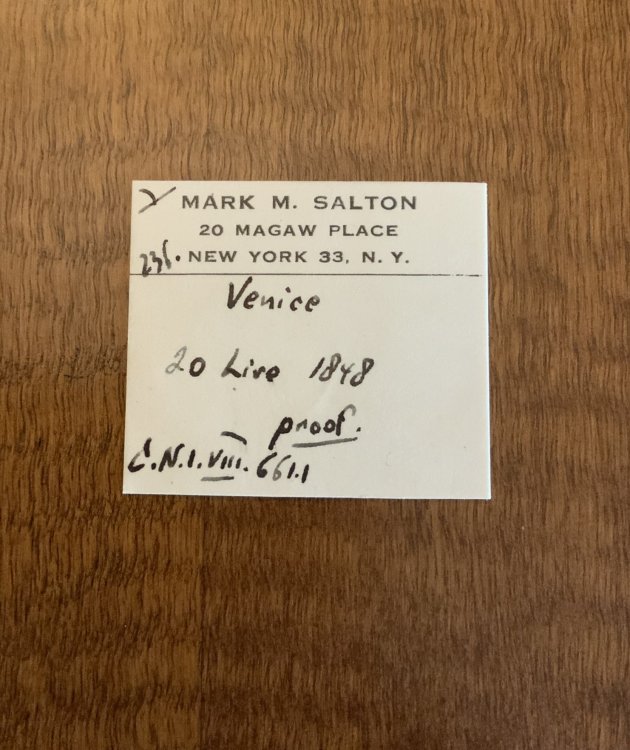 MARK M. SALTON
20 MAGAW PLACE
NEW YORK 33, N. Y.
Venice
20 Lire 1848
proof.
C.N.I.VIII.661.1